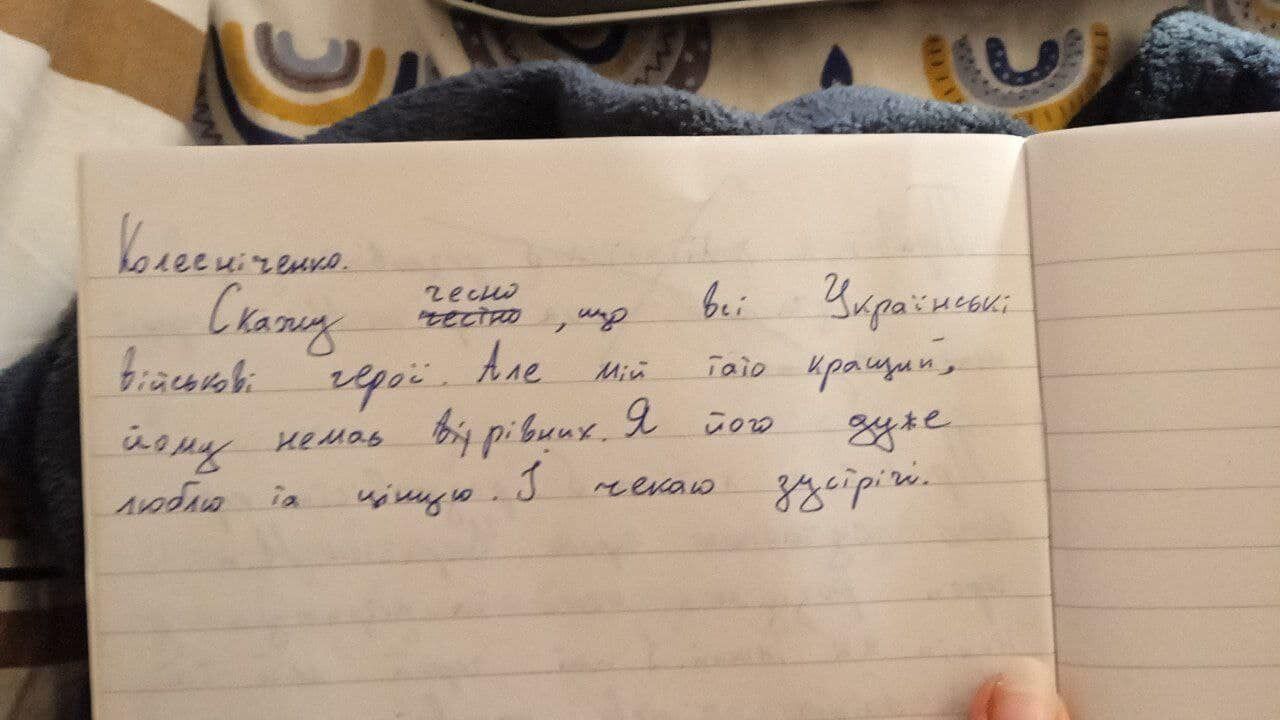 Колесніченко.
Скажу чесно
честно, що всі Українські
військові герої. Але мій тато кращий,
йому немає від рівних. Я його дуже
люблю та ціную. І чекаю зустрічі.